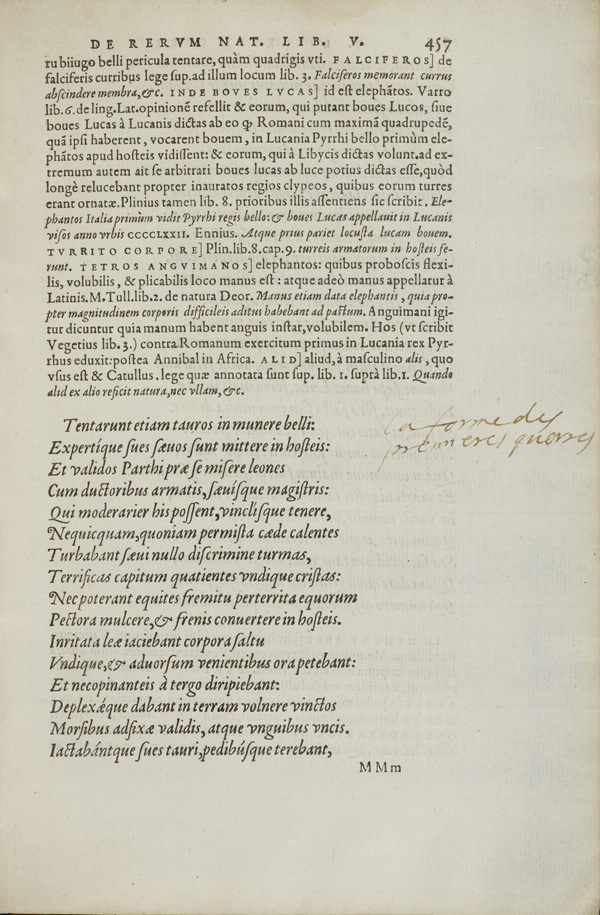 DE RERVM NAT. LIB. V. 457
ru biiugo belli pericula tentare, quàm quadrigis vti. FALCIFEROS] de
falciferis curribus lege sup. ad illum locum lib. 3. Falciferos memorant currus
abscindere membra, &c. INDE BOVES LVCAS] id est elephãtos. Varro
lib. 6. de ling. Lat. opinionẽ refellit & eorum, qui putant boues Lucos, siue
boues Lucas à Lucanis dictas ab eo ꝙ Romani cum maximã quadrupedẽ,
quã ipsi haberent, vocarent bouem, in Lucania Pyrrhi bello primùm ele-
phãtos apud hosteis vidissent: & eorum, qui à Libycis dictas volunt. ad ex-
tremum autem ait se arbitrari boues lucas ab luce potius dictas esse, quòd
longè relucebant propter inauratos regios clypeos, quibus eorum turres
erant ornatæ. Plinius tamen lib. 8. prioribus illis assentiens sic scribit. Ele-
phantos Italia primùm vidit Pyrrhi regis bello: & boues Lucas appellauit in Lucanis
visos anno vrbis CCCCLXXII. Ennius. Atque prius pariet locusta lucam bouem.
TVRRITO CORPORE] Plin. lib. 8. cap. 9. turreis armatorum in hosteis fe-
runt. TETROS ANGVIMANOS] elephantos: quibus proboscis flexi-
lis, volubilis, & plicabilis loco manus est: atque adeò manus appellatur à
Latinis. M. Tull. lib. 2. de natura Deor. Manus etiam data elephantis, quia pro-
pter magnitudinem corporis difficileis aditus habebant ad pastum. Anguimani igi-
tur dicuntur quia manum habent anguis instar, volubilem. Hos (vt scribit
Vegetius lib. 3.) contra Romanum exercitum primus in Lucania rex Pyr-
rhus eduxit: postea Annibal in Africa. ALID] aliud, à masculino alis, quo
vsus est & Catullus. lege quæ annotata sunt sup. lib. 1. suprà lib. 1. Quando
alid ex alio reficit natura, nec vllam, &c.
Tentarunt etiam tauros in munere belli:
Expertíque sues sæuos sunt mittere in hosteis:
Et validos Parthi præ se misere leones
Cum ductoribus armatis, sæuísque magistris:
Qui moderarier his possent, vinclísque tenere,
Nequicquam, quoniam permista cæde calentes
Turbabant sæui nullo discrimine turmas,
Terrificas capitum quatientes vndique cristas:
Nec poterant equites fremitu perterrita equorum
Pectora mulcere, & frenis conuertere in hosteis.
Inritata leæ iaciebant corpora saltu
Vndique, & aduorsum venientibus ora petebant:
Et necopinanteis à tergo diripiebant:
Deplexǽque dabant in terram volnere vinctos
Morsibus adfixæ validis, atque vnguibus vncis.
Iactabántque sues tauri, pedibúsque terebant,
MMm
la forme des
premieres guerres